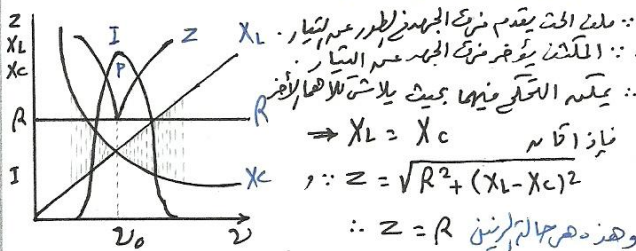 Z
XL
XC
R
I
I
P
Z
XL
R
XC
υ₀
υ
∵ ملف الحث يقدم فرق الجهد فى الطور عن التيار.
∵ المكثف يؤخر فرق الجهد عن التيار.
∴ يمكن التحكم فيهما بحيث يلاشى كلاهما الأخر
فإذا كان ⇒ XL = XC
∵ Z = √R² + (XL - XC)²
وهذه هى حالة الرنين ∴ Z = R